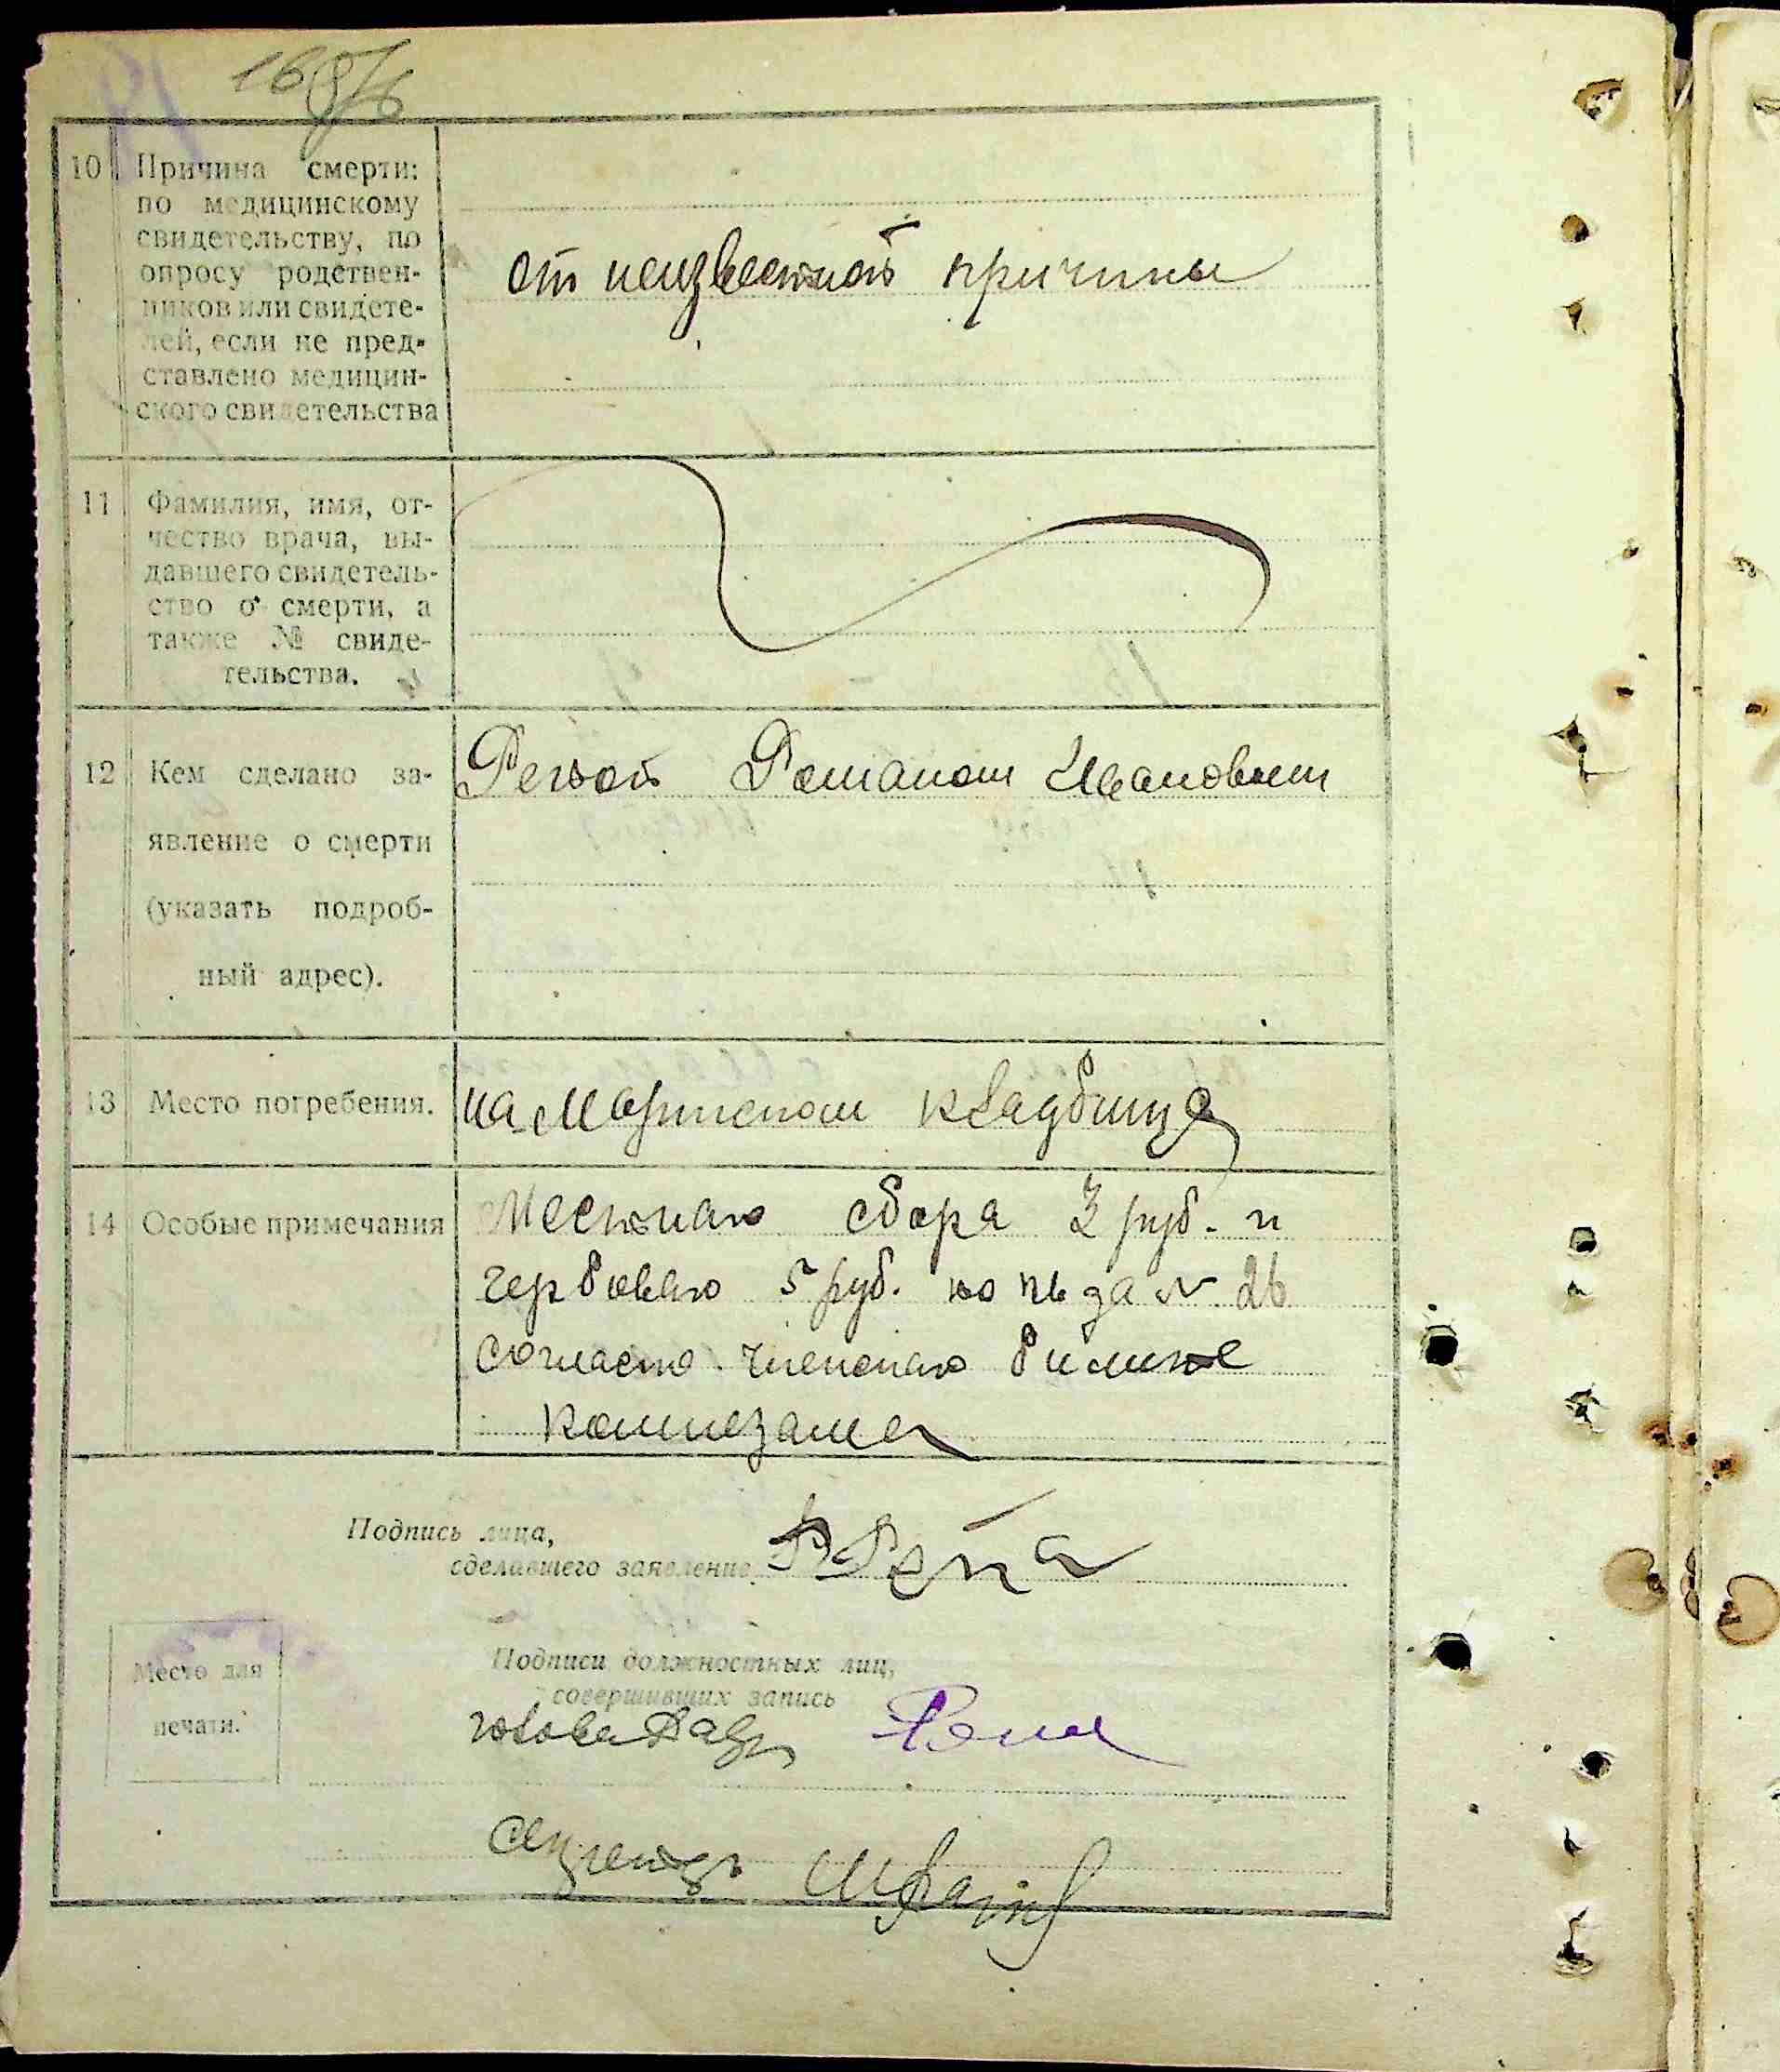 10 Причина смерти:
по медицинскому
свидетельству, по
опросу родствен-
ников или свидете-
лей, если не пред-
ставлено медицин-
ского свидетельства
от неизвестной причины
11 Фамилия, имя, от-
чество врача, вы-
давшего свидетель-
ство о смерти, а
также № свиде-
тельства.
12 Кем сделано за-
явление о смерти
(указать подроб-
ный адрес).
Репой Романом Ивановичем
13 Место погребения.
на кладбище
14 Особые примечания
Местного сбора 3 руб. и
гербового 5 руб. № 26
согласно
Подпись лица,
сделавшего заявление
Р Репа
Место для
печати.
Подписи должностных лиц,
совершивших запись